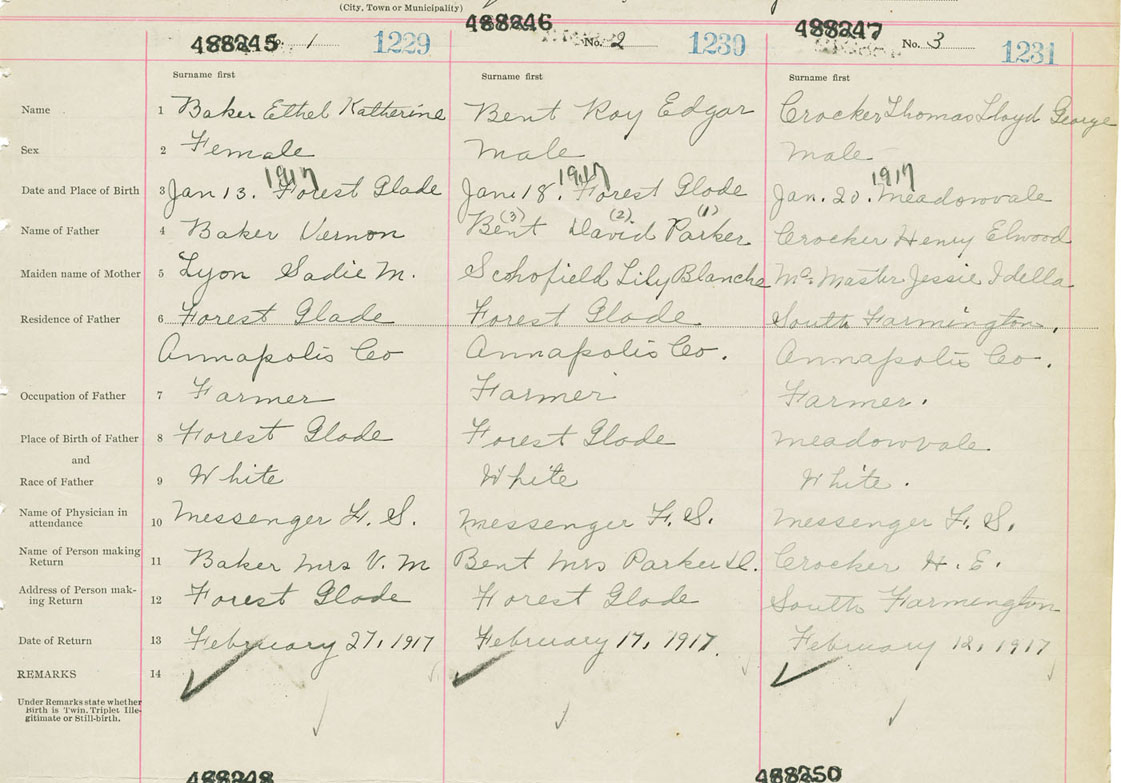 (City, Town or Municipality)
488245 No. 1 1229 488246 No. 2 1230 488247 No. 3 1231
Surname first Surname first Surname first
Name 1 Baker Ethel Katherine Bent Roy Edgar Crocker Thomas Lloyd George
Sex 2 Female Male Male
1917 1917 1917
Date and Place of Birth 3 Jan 13. Forest Glade Jan. 18. Forest Glade Jan. 20. Meadowvale
(3) (2) (1)
Name of Father 4 Baker Vernon Bent David Parker Crocker Henry Elwood
Maiden name of Mother 5 Lyon Sadie M. Schofield Lily Blanche Mc Master Jessie Idella
Residence of Father 6 Forest Glade Forest Glade South Farmington,
Annapolis Co Annapolis Co. Annapolis Co.
Occupation of Father 7 Farmer Farmer Farmer.
Place of Birth of Father 8 Forest Glade Forest Glade Meadowvale
and
Race of Father 9 White White White.
Name of Physician in
attendance 10 Messenger F. S. Messenger F. S. Messenger F. S.
Name of Person making
Return 11 Baker Mrs V. M Bent Mrs Parker D. Crocker H. E.
Address of Person mak-
ing Return 12 Forest Glade Forest Glade South Farmington
Date of Return 13 February 27, 1917 February 17, 1917. February 12, 1917
REMARKS 14
Under Remarks state whether
Birth is Twin, Triplet Ille-
gitimate or Still-birth.
488248 488250